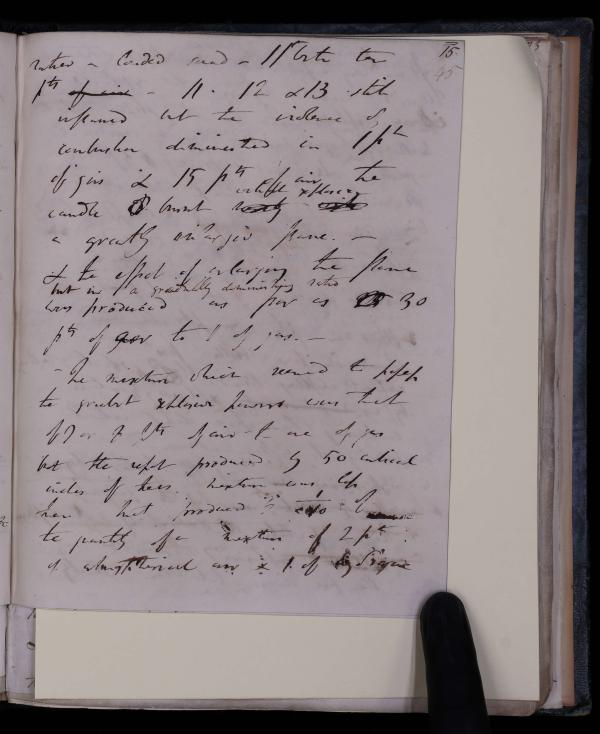 15
45
rather a loud sound - 11 parts ten
pts of air - 11. 12 & 13 still
inflamed but the violence of
combustion diminished in 1 pt
of gas & 15 pts of air the
without explosion
candle burnt
a greatly enlarged flame. —
& the effect of enlarging the flame
but in a gradually diminishing ratio
was produced as far as 30
pts of air to 1 of gas. —
The mixture which seemed to possess
the greatest explosive powers was that
of 7 or 8 pts of air to one of gas
but the report produced by 50 cubical
inches of this mixture was less
than that produced by 1/10 of
the quantity of a mixture of 2 pts
of atmospherical air & 1 of hydrogene